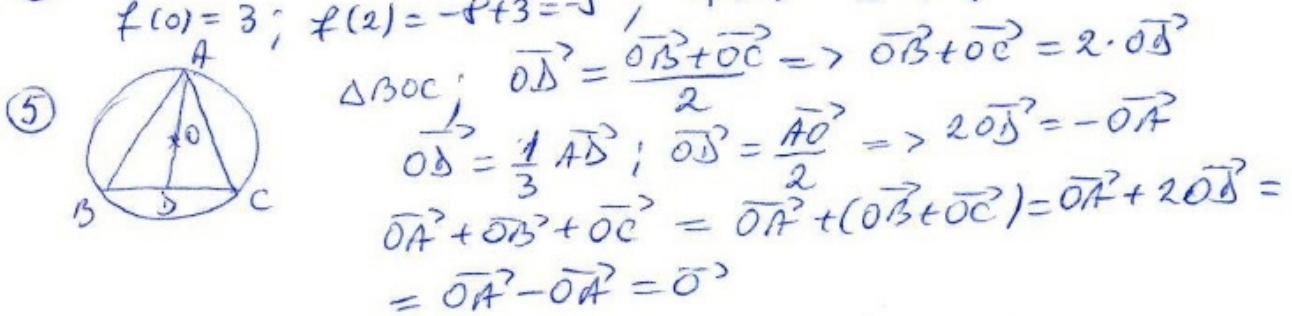 f(0) = 3 ; f(2) = -8+3 = -5 ,
A
5
O
B D C
ΔBOC ; \overrightarrow{OD} = \frac{\overrightarrow{OB} + \overrightarrow{OC}}{2} => \overrightarrow{OB} + \overrightarrow{OC} = 2 · \overrightarrow{OD}
\overrightarrow{OD} = \frac{1}{3} \overrightarrow{AD} ; \overrightarrow{OD} = \frac{\overrightarrow{AO}}{2} => 2\overrightarrow{OD} = -\overrightarrow{OA}
\overrightarrow{OA} + \overrightarrow{OB} + \overrightarrow{OC} = \overrightarrow{OA} + (\overrightarrow{OB} + \overrightarrow{OC}) = \overrightarrow{OA} + 2\overrightarrow{OD} =
= \overrightarrow{OA} - \overrightarrow{OA} = \overrightarrow{O}